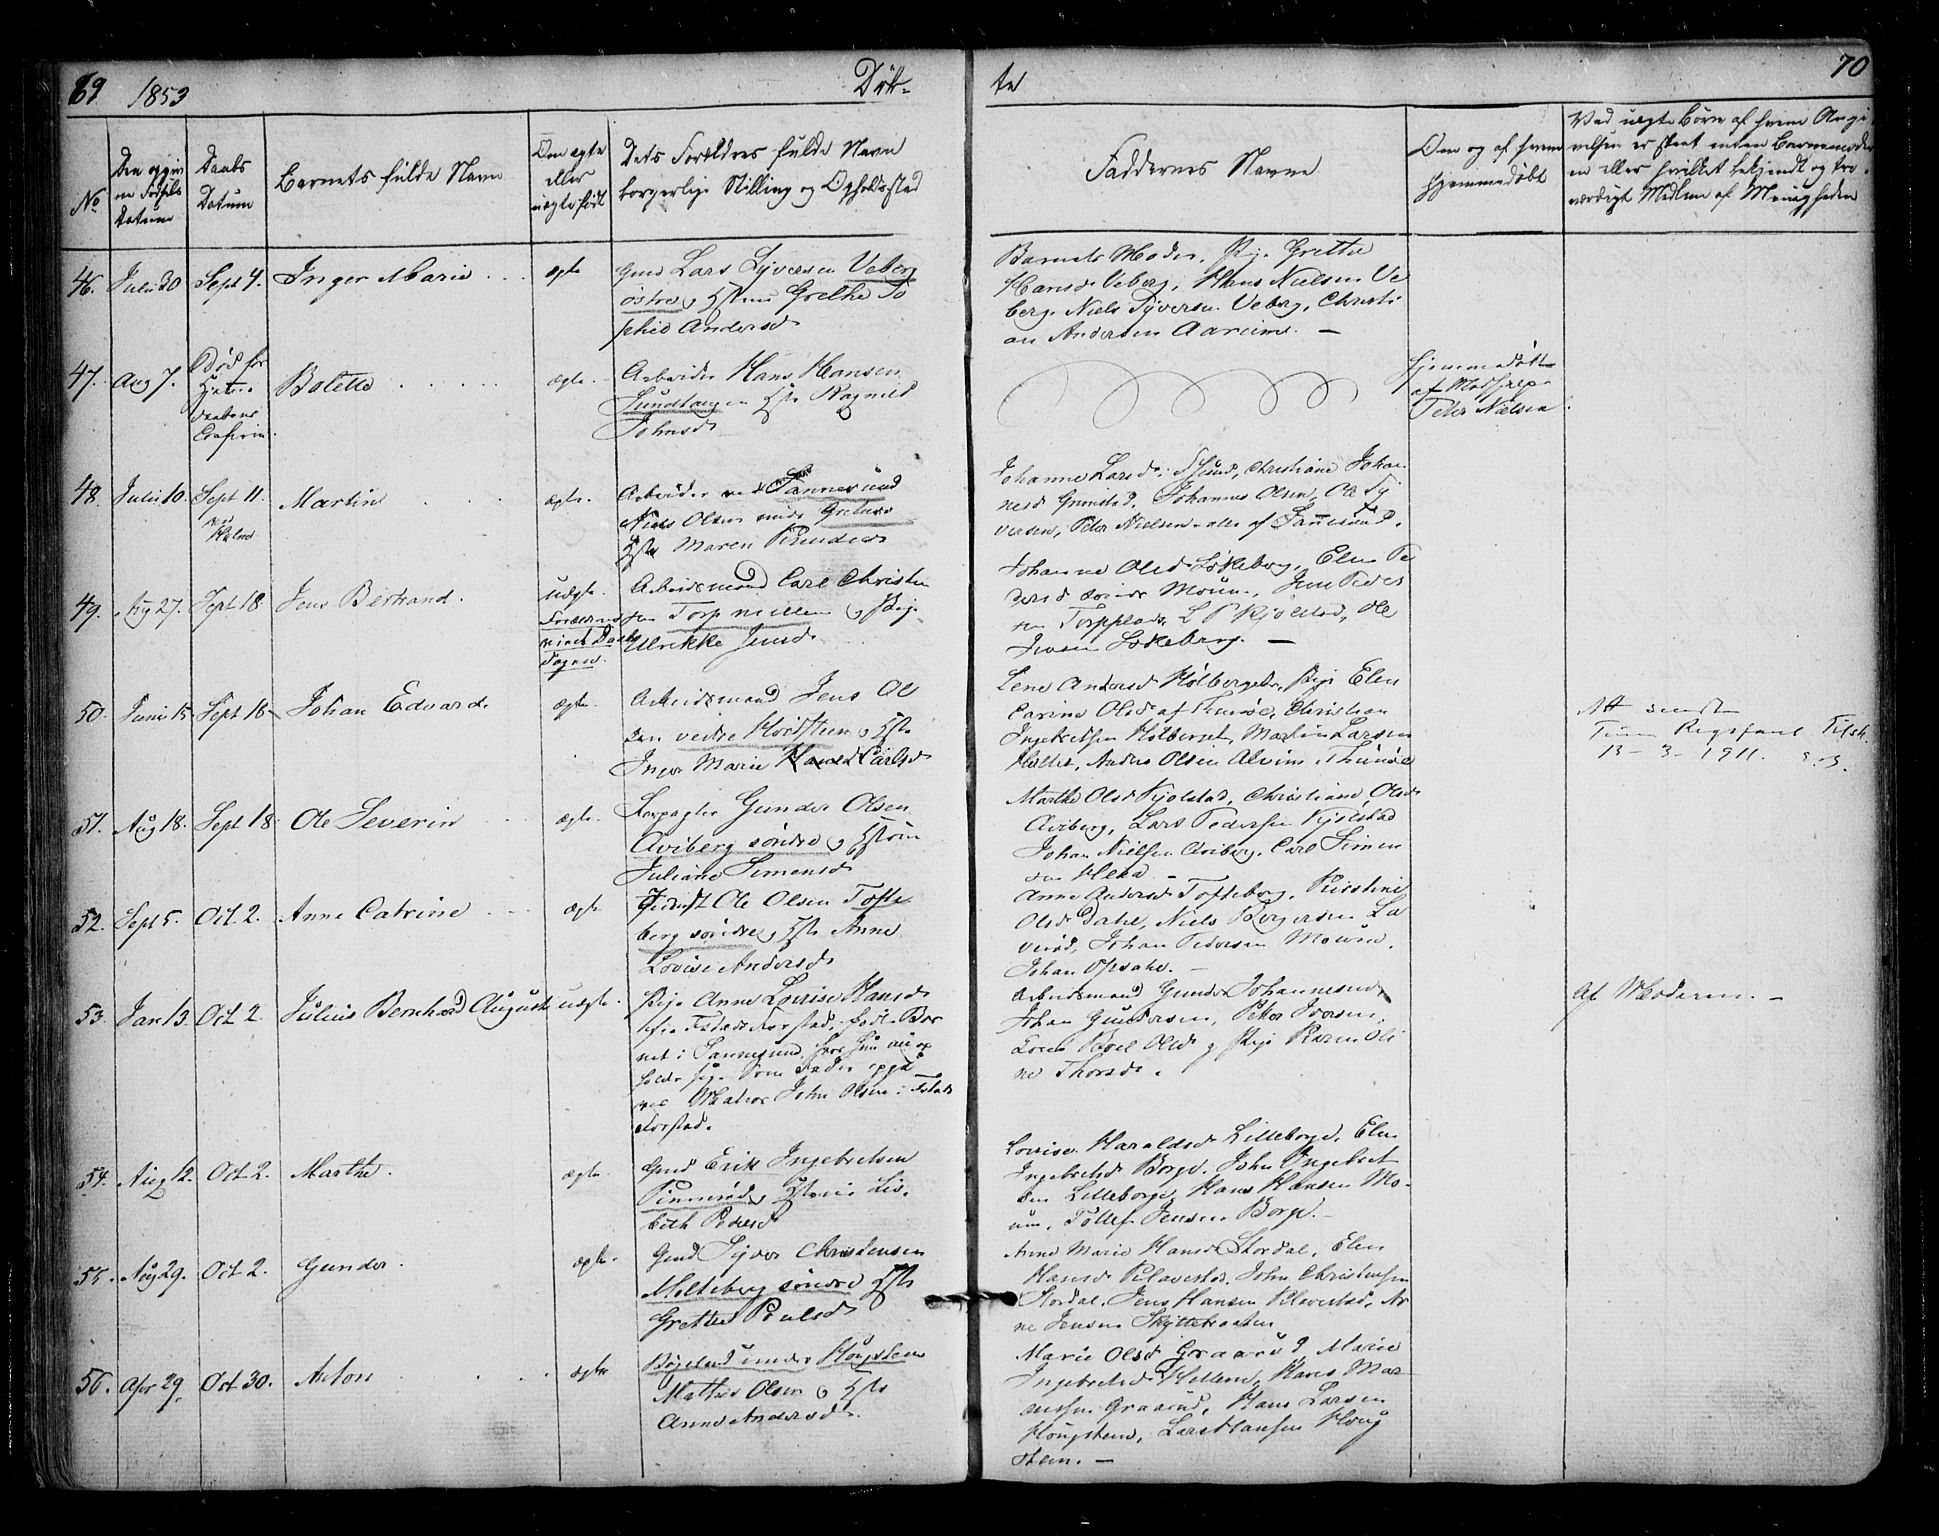 69 1853 Døb-
te 70
No
Den opgiv
ne Fødsels
Datum
Daabs
Datum
Barnets fulde Navn
Om ægte
eller
uægte født
Dets Forældres fulde Navn
borgerlige Stilling og Opholdssted
Faddernes Navne
Om og af hvem
hjemmedøbt
Ved uægte Børn af hvem Angi
velsen er skeet uden Barnemoder
en eller hvilket bekjendt og tro-
værdigt Medlem af Menigheden
46. Juli 20 Sept 4. Inger Marie ægte
Gmd Lars Syversen Veberg
østre, Hstru Grethe So
phie Andersd
Barnets Moder, Pige Grethe
Hansd Veberg, Hans Nielsen Ve
berg, Niels Syversen Veberg, Christi
an Andersen Aarum. —
47. Aug 7. Død før
Bolette ægte.
Arbeider Hans Hansen
Sundløkken Hst Ragnild
Johnsd
Hjemmedøbt
af
Peter Nielsen
48. Juli 10. Sept 11. Martin ægte.
Arbeider ved Sannesund
Niels Olsen under
Hst Maren Knudsd
Johanne Larsd. Christiane Johan
nesd Grimstad, Johannes Olsen, Ole Sy
versen, Peter Nielsen alle af Sannesund.
49. Aug 27. Sept 18 Jens Bertrand. uægte.
Forældrenes
Arbeidsmand Carl Christen
sen Torpmellem, Pige
Ulrikke Jensd
Johanne Olsd Løkeberg, Elen Pe
dersd søndre Moum, Jens Peder
sen Torpplads, L P Kjølstad, Ole
Iversen Løkeberg. —
50. Juni 15 Sept 18 Johan Edvard. ægte.
Arbeidsmand Jens Ol
sen vestre Hvidsteen, Hst
Inger Marie Hansd Carlsd
Lene Andersd Holberget, Pige Elen
Carine Olsd af Thunøe, Christian
Ingebretsen Holberget, Martin Larsen
Holtet, Anders Olsen Alvim
Att sendt
Tune Regskont
13 - 3 - 1911.
51. Aug 18. Sept 18. Ole Severin ægte.
Forpagter Gunder Olsen
Aviberg søndre, Hstru
Juliane Simensd
Marthe Olsd Kjølstad, Christiane Olsd
Aviberg, Lars Pedersen Kjølstad
Johan Nielsen Aviberg, Carl Simen
sen
52. Sept 5. Oct. 2. Anne Catrine ægte
Ole Olsen Tofte
berg søndre, Hst Anne
Lovise Andersd
Anne Andersd Tofteberg, Kirstine
Olsd Dahl, Niels Borgersen La
verød, Johan Pedersen Moum,
Johan Opsahl. —
53. Jan 13. Oct. 2. Julius Bernhard August uægte.
Pige Anne Lovise Hansd
fra Isteds Forstad, født Bar
net i Sannesund, hvor hun nu op
holder sig. Som Fader opgi
ves Matros John Olsen i Isteds
Forstad.
Arbeidsmand Gunder Johannesen,
Johan Gundersen, Peter Iversen,
Boel Olsd og Pige Karen Oli
ne Thorsd.
Af Moderen. —
54. Aug 12. Oct. 2. Marthe. ægte
Gmd Erik Ingebretsen
Hstru Lis.
beth Pedersd
Lovise Haraldsd Lilleborge, Elen
Ingebretsd Borge. John Ingebret
sen Lilleborge, Hans Hansen Mo-
um, Tollef Jensen Borge. —
55. Aug 29. Oct. 2. Gunder. ægte.
Gmd Syver Christensen
Melleberg søndre Hst
Grethe Poulsd
Anne Marie Hansd Stordal, Elen
Hansd Klavestad, John Christensen
Stordal, Jens Hansen Klavestad, Ar
ne Jensen Skyttebraaten
56. Apr 29. Oct 30. Anton ægte
Bøgeland under Hougsteen
Mathis Olsen og Hst
Anne Andersd.
Marie Olsd Graarud, Marie
Ingebretsd Helland, Hans Mar
Graarud, Hans Larsen
Hougsteen, Lars Hansen Houg
steen. —